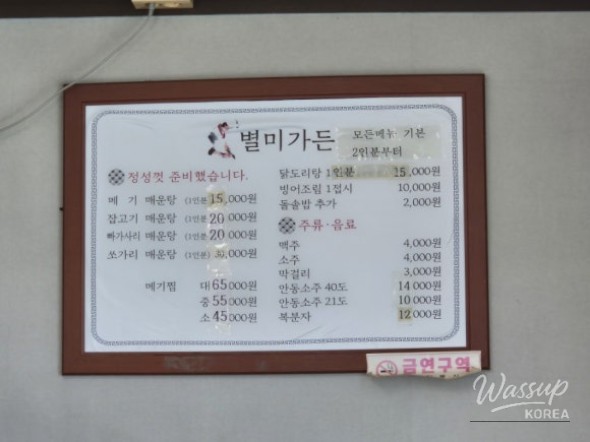 별미가든
모든메뉴 기본
2인분부터
정성껏 준비했습니다.
메 기 매운탕 (1인분) 15,000원
잡고기 매운탕 (1인분) 20,000원
빠가사리 매운탕 (1인분) 20,000원
쏘가리 매운탕 (1인분) 30,000원
메기찜 대 65,000원
중 55,000원
소 45,000원
닭도리탕 1인분 15,000원
빙어조림 1접시 10,000원
돌솥밥 추가 2,000원
주류·음료
맥주 4,000원
소주 4,000원
막걸리 3,000원
안동소주 40도 14,000원
안동소주 21도 10,000원
복분자 12,000원
금연구역
Wassup
KOREA